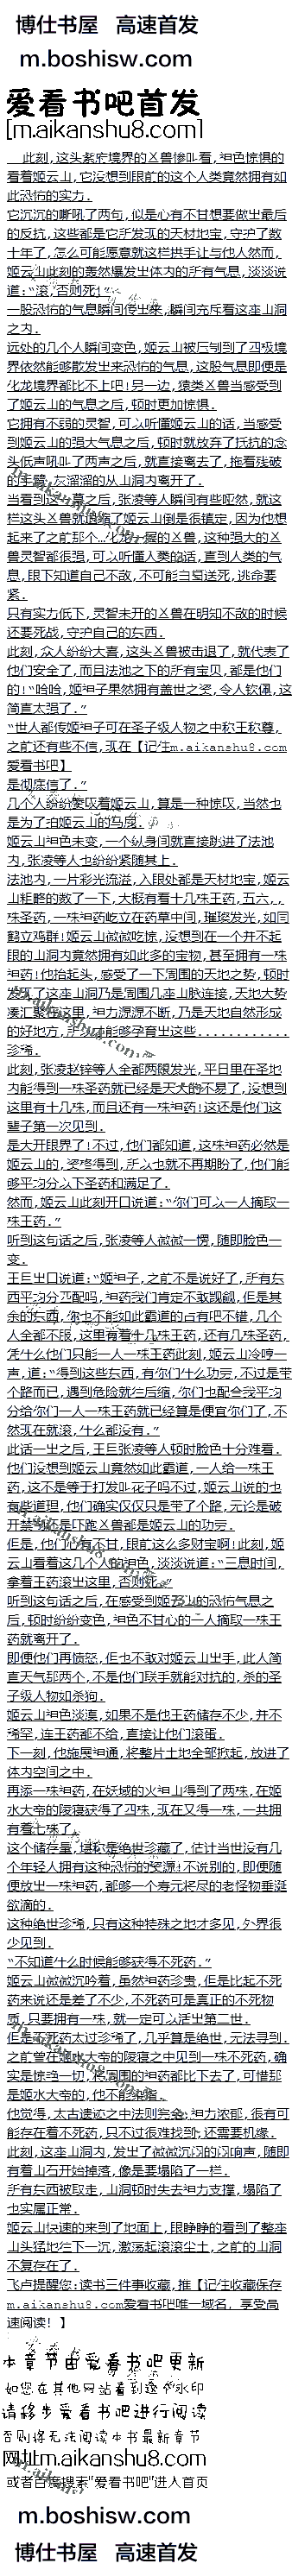 博仕书屋 高速首发
m.boshisw.com
爱看书吧首发
[m.aikanshu8.com]
此刻,这头紫府境界的凶兽惨叫着,神色惊惧的
看着姬云山,它没想到眼前的这个人类竟然拥有如
此恐怖的实力.
它沉沉的嘶吼了两句,似是心有不甘想要做出最后
的反抗,这些都是它所发现的天材地宝,守护了数
十年了,怎么可能愿意就这样拱手让与他人然而,
姬云山此刻的轰然爆发出体内的所有气息,淡淡说
道:“滚,否则死!
一股恐怖的气息瞬间传出来,瞬间充斥着这座山洞
之内.
远处的几个人瞬间变色,姬云山被压制到了四极境
界依然能够散发出来恐怖的气息,这股气息即便是
化龙境界都比不上吧!另一边,猿类凶兽当感受到
了姬云山的气息之后,顿时更加惊惧.
它拥有不弱的灵智,可以听懂姬云山的话,当感受
到姬云山的强大气息之后,顿时就放弃了抵抗的念
头低声吼叫了两声之后,就直接离去了,拖着残破
的手臂,灰溜溜的从山洞内离开了.
当看到这一幕之后,张凌等人瞬间有些哑然,就这
样这头凶兽就退缩了姬云山倒是很镇定,因为他想
起来了之前那个...化龙一层的凶兽,这种强大的凶
兽灵智都很强,可以听懂人类的话,直到人类的气
息,眼下知道自己不敌,不可能白白送死,逃命要
紧.
只有实力低下,灵智未开的凶兽在明知不敌的时候
还要死战,守护自己的东西.
此刻,众人纷纷大喜,这头凶兽被击退了,就代表了
他们安全了,而且法池之下的所有宝贝,都是他们
的!“哈哈,姬神子果然拥有盖世之姿,令人钦佩,这
简直太强了.”
“世人都传姬神子可在圣子级人物之中称王称尊,
之前还有些不信,现在【记住m.aikanshu8.com
爱看书吧】
是彻底信了.”
几个人纷纷赞叹着姬云山,算是一种惊叹,当然也
是为了拍姬云山的马屁.
姬云山神色未变,一个纵身间就直接跳进了法池
内,张凌等人也纷纷紧随其上.
法池内,一片彩光流溢,入眼处都是天材地宝,姬云
山粗略的数了一下,大概有着十几株王药,五六,,
株圣药,一株神药屹立在药草中间,璀璨发光,如同
鹤立鸡群!姬云山微微吃惊,没想到在一个并不起
眼的山洞内竟然拥有如此多的宝物,甚至拥有一株
神药!他抬起头,感受了一下周围的天地之势,顿时
发现了这座山洞乃是周围几座山脉连接,天地大势
凑汇聚在这里,神力源源不断,乃是天地自然形成
的好地方,所以才能够孕育出这些............
珍稀.
此刻,张凌赵锌等人全都两眼发光,平日里在圣地
内能得到一株圣药就已经是天大的不易了,没想到
这里有十几株,而且还有一株神药!这还是他们这
辈子第一次见到.
是大开眼界了!不过,他们都知道,这株神药必然是
姬云山的,姿格得到,所以也就不再期盼了,他们能
够平均分以下圣药和满足了.
然而,姬云山此刻开口说道:“你们可以一人摘取一
株王药.”
听到这句话之后,张凌等人微微一愣,随即脸色一
变.
王巨出口说道:“姬神子,之前不是说好了,所有东
西平均分匹配吗,神药我们肯定不敢觊觎,但是其
余的东西,你也不能如此霸道的占有吧不错,几个
人全都不服,这里有着十几株王药,还有几株圣药,
凭什么他们只能一人一株王药此刻,姬云山冷哼一
声,道:“得到这些东西,有你们什么功劳,不过是带
个路而已,遇到危险就往后缩,你们也配合我平均
分给你们一人一株王药就已经算是便宜你们了,不
然现在就滚,什么都没有.”
此话一出之后,王巨张凌等人顿时脸色十分难看.
他们没想到姬云山竟然如此霸道,一人给一株王
药,这不是等于打发叫花子吗不过,姬云山说的也
有些道理,他们确实仅仅只是带了个路,无论是破
开禁制还是吓跑凶兽都是姬云山的功劳.
但是,他们也有不甘,眼前这么多财宝啊!此刻,姬
云山看着这几个人的神色,淡淡说道:“三息时间,
拿着王药滚出这里,否则死.”
听到这句话之后,在感受到姬云山的恐怖气息之
后,顿时纷纷变色,神色不甘心的一人摘取一株王
药就离开了.
即便他们再愤怒,但也不敢对姬云山出手,此人简
直天气那两个,不是他们联手就能对抗的,杀的圣
子级人物如杀狗.
姬云山神色淡漠,如果不是他王药储存不少,并不
稀罕,连王药都不给,直接让他们滚蛋.
下一刻,他施展神通,将整片土地全部掀起,放进了
体内空间之中.
再添一株神药,在妖域的火神山得到了两株,在姬
水大帝的陵寝得了四株,现在又得一株,一共拥
有着七株了.
这个储存量,堪称是绝世珍藏了,估计当世没有几
个年轻人拥有这种恐怖的资源!不说别的,即便随
便放出一株神药,都够一个寿元将尽的老怪物垂涎
欲滴的.
这种绝世珍稀,只有这种特殊之地才多见,外界很
少见到.
“不知道什么时候能够获得不死药.”
姬云山微微沉吟着,虽然神药珍贵,但是比起不死
药来说还是差了不少,不死药可是真正的不死物
质,只要拥有一株,就一定可以活出第二世.
但是不死药太过珍稀了,几乎算是绝世,无法寻到.
之前曾在姬水大帝的陵寝之中见到一株不死药,确
实是惊艳一切,将周围的神药都比下去了,可惜那
是姬水大帝的,他不能染指.
他觉得,太古遗迹之中法则完全,神力浓郁,很有可
能存在着不死药,只不过很难找到,还需要机缘.
此刻,这座山洞内,发出了微微沉闷的闷响声,随即
有着山石开始掉落,像是要塌陷了一样.
所有东西被取走,山洞顿时失去神力支撑,塌陷了
也实属正常.
姬云山快速的来到了地面上,眼睁睁的看到了整座
山头猛地往下一沉,激荡起滚滚尘土,之前的山洞
不复存在了.
飞卢提醒您:读书三件事收藏,推【记住收藏保存
m.aikanshu8.com爱看书吧唯一域名，享受高
速阅读！】
本章节由爱看书吧更新
如您在其他网站看到这个水印
请移步爱看书吧进行阅读
否则将无法阅读本书最新章节
网址m.aikanshu8.com
或者百度搜索"爱看书吧"进入首页
m.boshisw.com
博仕书屋 高速首发